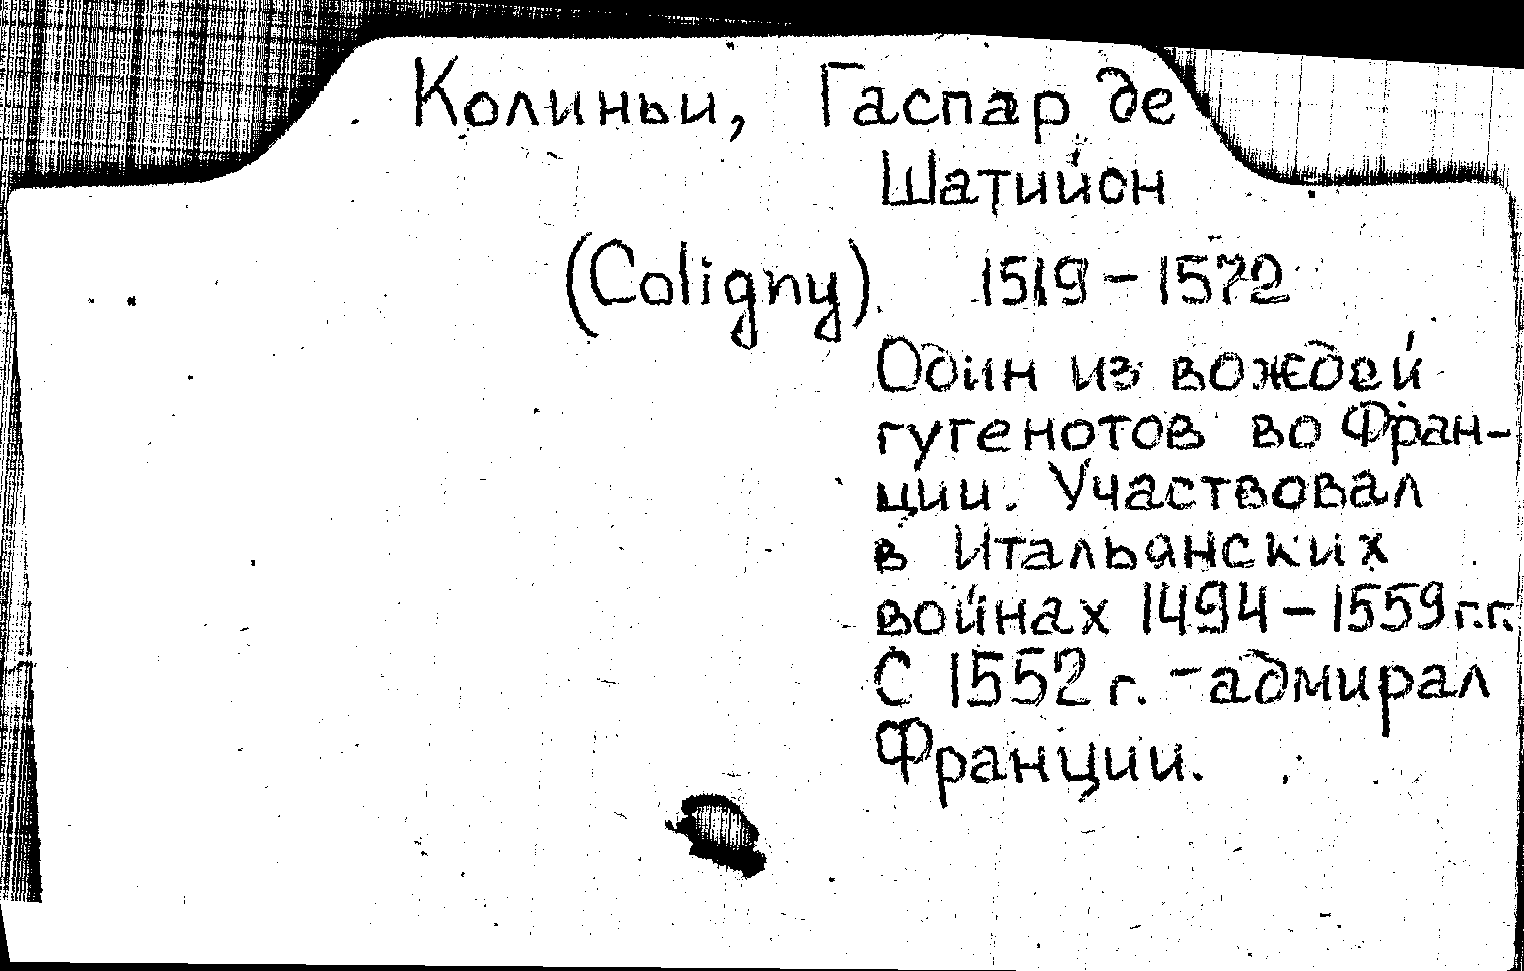 Колиньи, Гаспар де
Шатийон
(Coligny) 1519 – 1572
Один из вождей
гугенотов во Фран-
ции. Участвовал
в Итальянских
войнах 1494 – 1559 г.г.
С 1552 г. – адмирал
Франции.